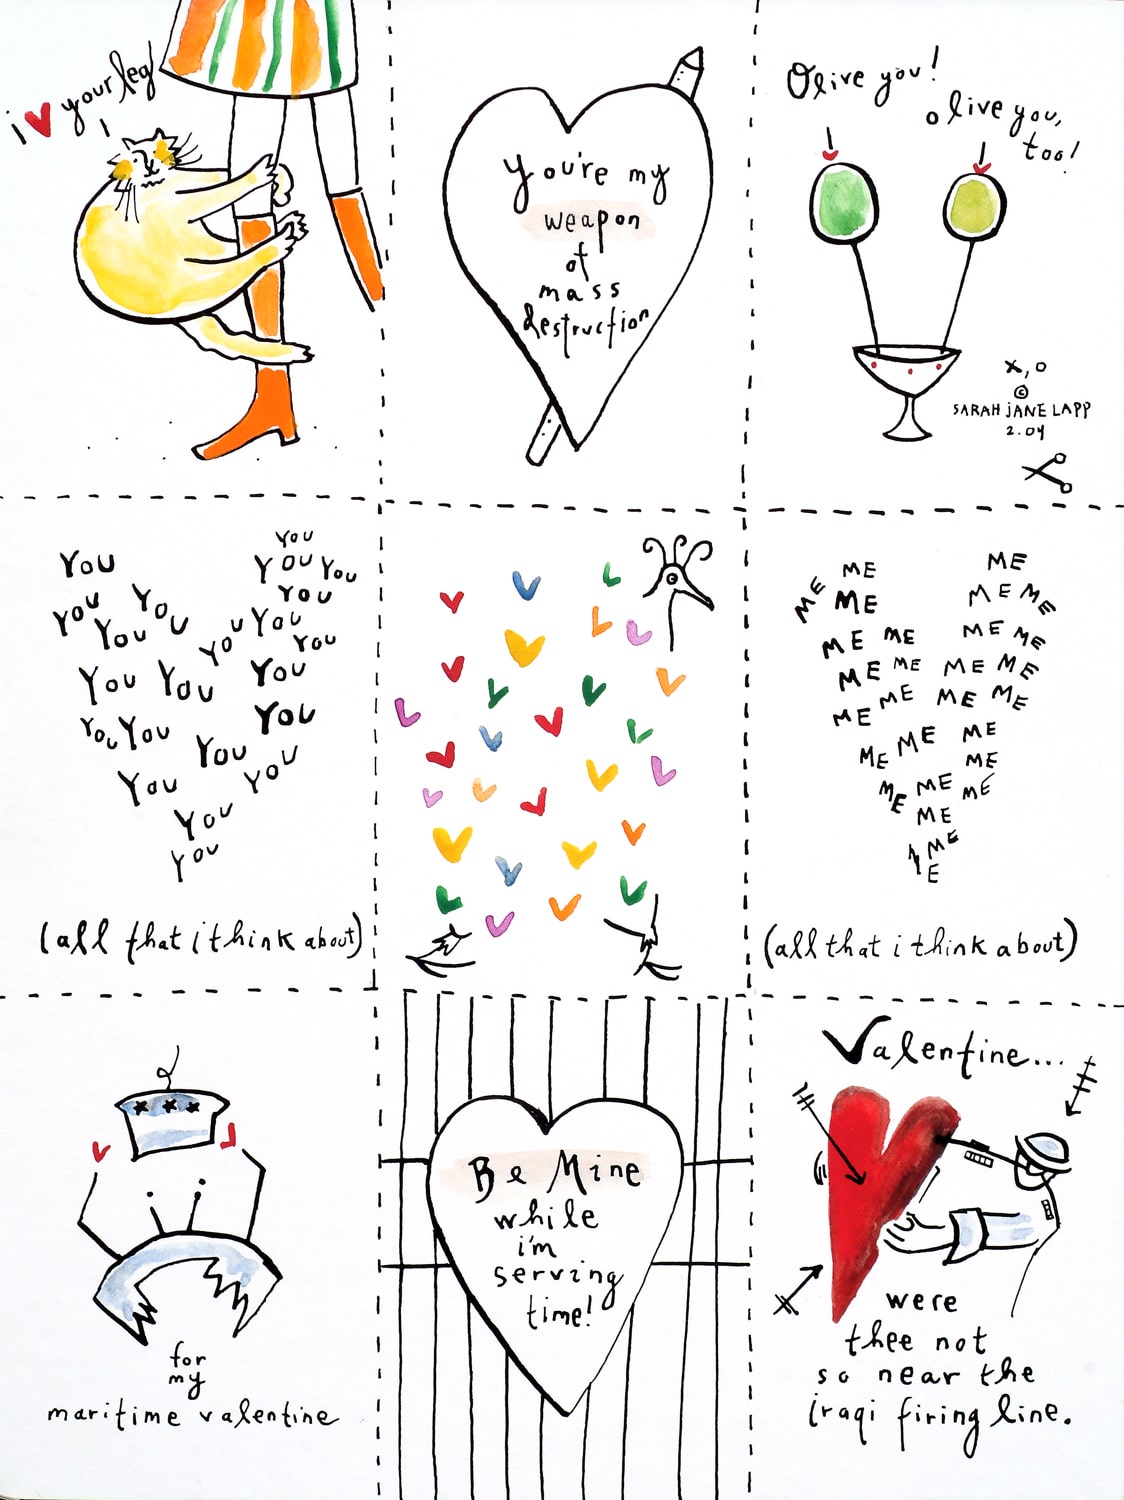 i ♥ your leg
You're my
weapon
of
mass
destruction
Olive you!
olive you,
too!
x, o
©
SARAH JANE LAPP
2.04
YOU YOU
YOU YOU
YOU YOU YOU
YOU YOU YOU YOU
YOU YOU YOU
YOU YOU YOU
YOU YOU
YOU
YOU
YOU
(all that i think about)
ME ME
ME ME ME ME
ME ME ME ME
ME ME ME ME
ME ME ME ME
ME ME ME
ME
ME ME ME
ME
ME
ME
(all that i think about)
for
my
maritime valentine
Be Mine
while
i'm
serving
time!
Valentine...
were
thee not
so near the
iraqi firing line.